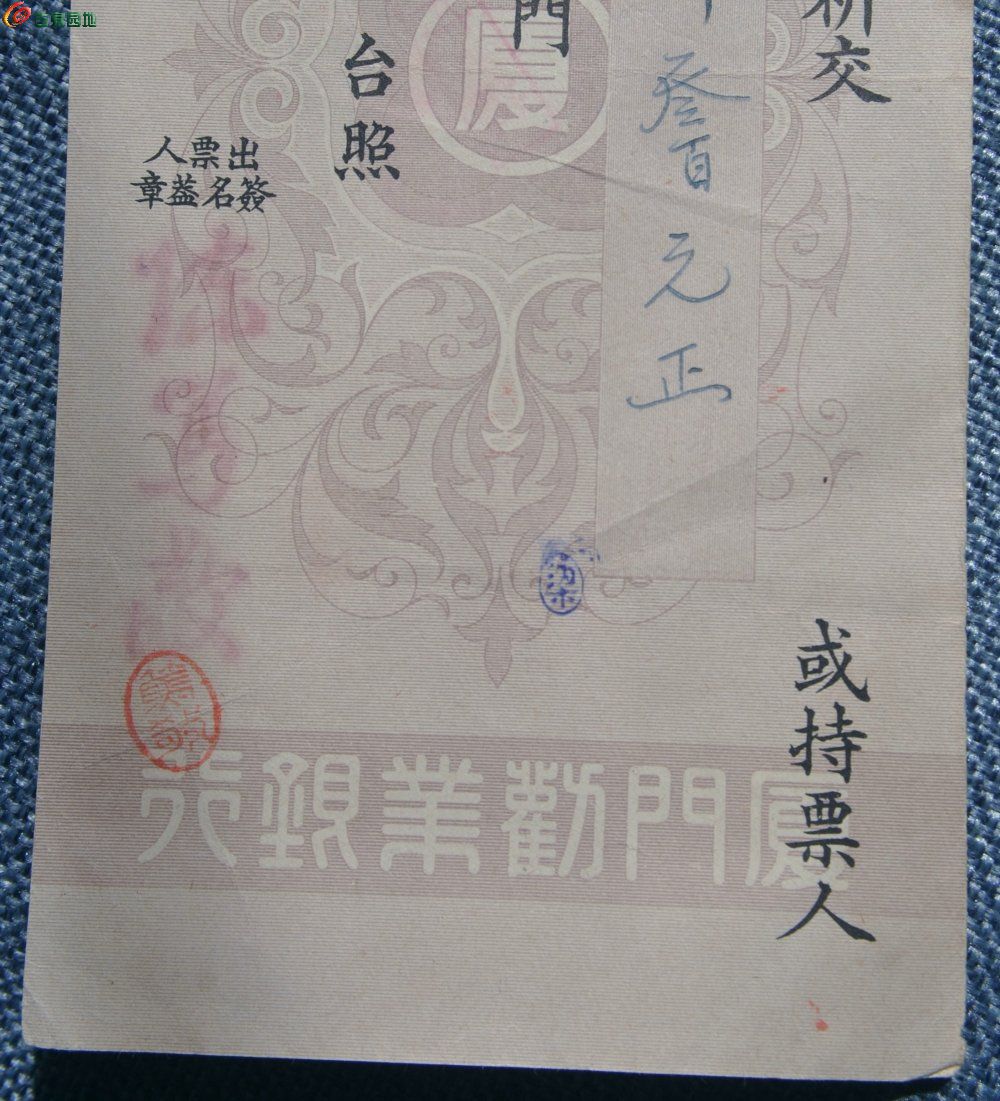 祈交
或持票人
叁百元正
門
廈
台照
出票人
簽名蓋章
廈門勸業銀行
古泉园地